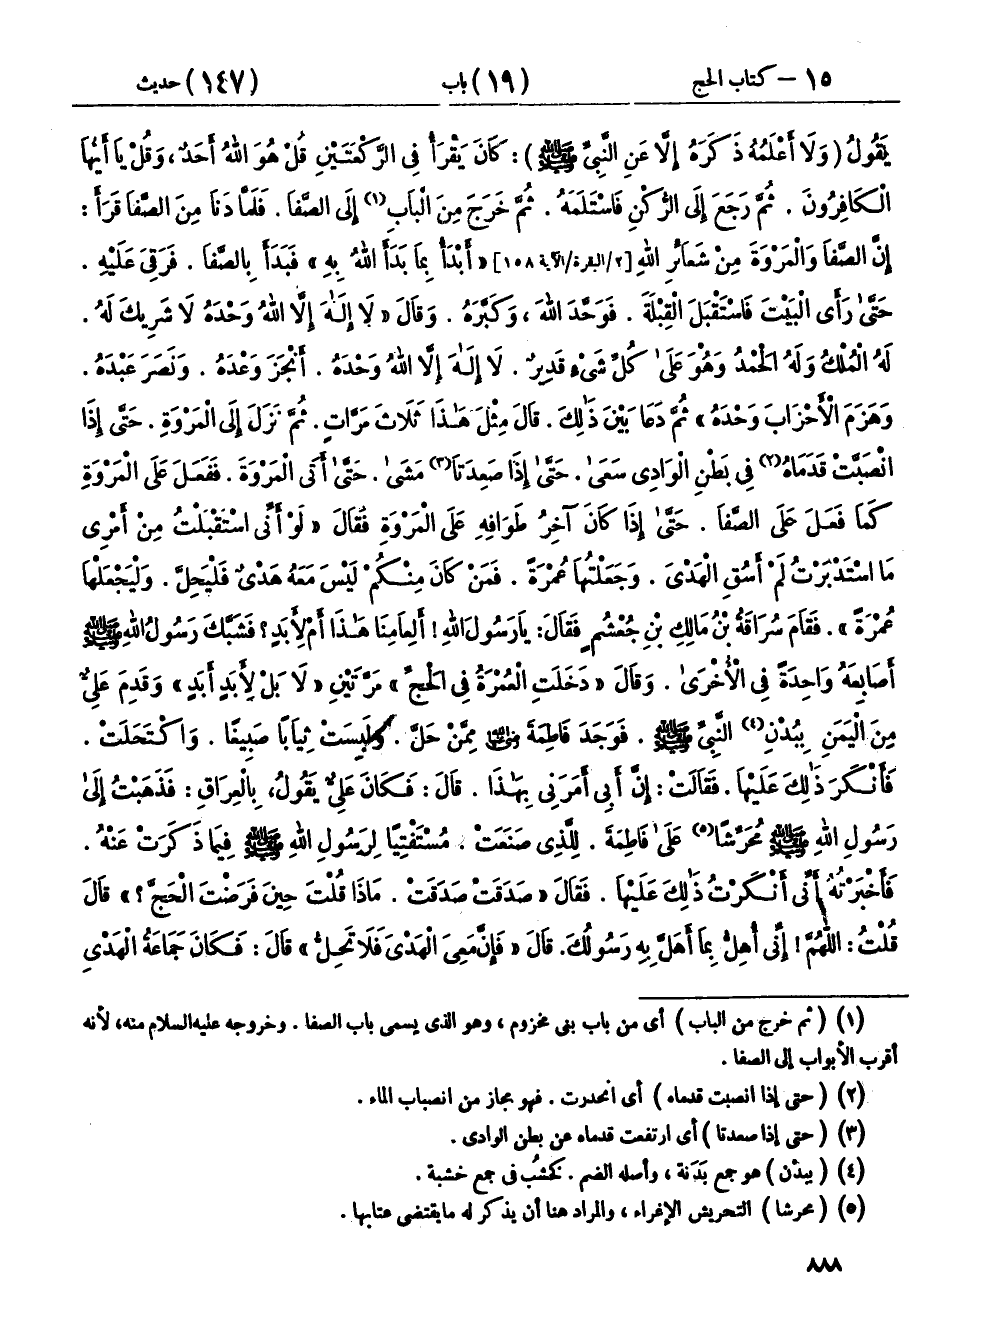 ١٥ – كتاب الحج (١٩) باب (١٤٧) حديث
يَقُولُ ( وَلَا أَعْلَمُهُ ذَكَرَهُ إِلَّا عَنِ النَّبِيِّ ﷺ ) : كَانَ يَقْرَأُ فِي الرَّكْعَتَيْنِ قُلْ هُوَ اللهُ أَحَدٌ ، وَقُلْ يَا أَيُّهَا
الْكَافِرُونَ . ثُمَّ رَجَعَ إِلَى الرُّكْنِ فَاسْتَلَمَهُ . ثُمَّ خَرَجَ مِنَ الْبَابِ(١) إِلَى الصَّفَا . فَلَمَّا دَنَا مِنَ الصَّفَا قَرَأَ :
إِنَّ الصَّفَا وَالْمَرْوَةَ مِنْ شَعَائِرِ اللهِ [٢/البقرة/الآية ١٥٨] « أَبْدَأُ بِمَا بَدَأَ اللهُ بِهِ » فَبَدَأَ بِالصَّفَا . فَرَقِيَ عَلَيْهِ .
حَتَّىٰ رَأَى الْبَيْتَ فَاسْتَقْبَلَ الْقِبْلَةَ . فَوَحَّدَ اللهَ ، وَكَبَّرَهُ . وَقَالَ « لَا إِلَـٰهَ إِلَّا اللهُ وَحْدَهُ لَا شَرِيكَ لَهُ .
لَهُ الْمُلْكُ وَلَهُ الْحَمْدُ وَهُوَ عَلَىٰ كُلِّ شَيْءٍ قَدِيرٌ . لَا إِلَـٰهَ إِلَّا اللهُ وَحْدَهُ . أَنْجَزَ وَعْدَهُ . وَنَصَرَ عَبْدَهُ .
وَهَزَمَ الْأَحْزَابَ وَحْدَهُ » ثُمَّ دَعَا بَيْنَ ذَٰلِكَ . قَالَ مِثْلَ هَـٰذَا ثَلَاثَ مَرَّاتٍ . ثُمَّ نَزَلَ إِلَى الْمَرْوَةِ . حَتَّىٰ إِذَا
انْصَبَّتْ قَدَمَاهُ(٢) فِي بَطْنِ الْوَادِي سَعَىٰ . حَتَّىٰ إِذَا صَعِدَتَا(٣) مَشَىٰ . حَتَّىٰ أَتَى الْمَرْوَةَ . فَفَعَلَ عَلَى الْمَرْوَةِ
كَمَا فَعَلَ عَلَى الصَّفَا . حَتَّىٰ إِذَا كَانَ آخِرُ طَوَافِهِ عَلَى الْمَرْوَةِ فَقَالَ « لَوْ أَنِّي اسْتَقْبَلْتُ مِنْ أَمْرِي
مَا اسْتَدْبَرْتُ لَمْ أَسُقِ الْهَدْيَ . وَجَعَلْتُهَا عُمْرَةً . فَمَنْ كَانَ مِنْكُمْ لَيْسَ مَعَهُ هَدْيٌ فَلْيَحِلَّ . وَلْيَجْعَلْهَا
عُمْرَةً » . فَقَامَ سُرَاقَةُ بْنُ مَالِكِ بْنِ جُعْشُمٍ فَقَالَ : يَا رَسُولَ اللهِ ! أَلِعَامِنَا هَـٰذَا أَمْ لِأَبَدٍ ؟ فَشَبَّكَ رَسُولُ اللهِ ﷺ
أَصَابِعَهُ وَاحِدَةً فِي الْأُخْرَىٰ . وَقَالَ « دَخَلَتِ الْعُمْرَةُ فِي الْحَجِّ » مَرَّتَيْنِ « لَا بَلْ لِأَبَدِ أَبَدٍ » وَقَدِمَ عَلِيٌّ
مِنَ الْيَمَنِ بِبُدْنِ(٤) النَّبِيِّ ﷺ . فَوَجَدَ فَاطِمَةَ رضي الله عنها مِمَّنْ حَلَّ . وَلَبِسَتْ ثِيَابًا صَبِيغًا . وَاكْتَحَلَتْ .
فَأَنْكَرَ ذَٰلِكَ عَلَيْهَا . فَقَالَتْ : إِنَّ أَبِي أَمَرَنِي بِهَـٰذَا . قَالَ : فَكَانَ عَلِيٌّ يَقُولُ ، بِالْعِرَاقِ : فَذَهَبْتُ إِلَىٰ
رَسُولِ اللهِ ﷺ مُحَرِّشًا(٥) عَلَىٰ فَاطِمَةَ . لِلَّذِي صَنَعَتْ ، مُسْتَفْتِيًا لِرَسُولِ اللهِ ﷺ فِيمَا ذَكَرَتْ عَنْهُ .
فَأَخْبَرْتُهُ أَنِّي أَنْكَرْتُ ذَٰلِكَ عَلَيْهَا . فَقَالَ « صَدَقَتْ صَدَقَتْ . مَاذَا قُلْتَ حِينَ فَرَضْتَ الْحَجَّ ؟ » قَالَ
قُلْتُ : اللَّهُمَّ ! إِنِّي أُهِلُّ بِمَا أَهَلَّ بِهِ رَسُولُكَ . قَالَ « فَإِنَّ مَعِيَ الْهَدْيَ فَلَا تَحِلُّ » قَالَ : فَكَانَ جَمَاعَةُ الْهَدْيِ
(١) ( ثم خرج من الباب ) أى من باب بنى مخزوم ، وهو الذى يسمى باب الصفا . وخروجه عليه السلام منه ، لأنه
أقرب الأبواب إلى الصفا .
(٢) ( حتى إذا انصبت قدماه ) أى انحدرت . فهو مجاز من انصباب الماء .
(٣) ( حتى إذا صعدتا ) أى ارتفعت قدماه عن بطن الوادى .
(٤) ( ببدْن ) هو جمع بَدَنة ، وأصله الضم . كخُشُب فى جمع خشبة .
(٥) ( محرشا ) التحريش الإغراء ، والمراد هنا أن يذكر له ما يقتضى عتابها .
٨٨٨